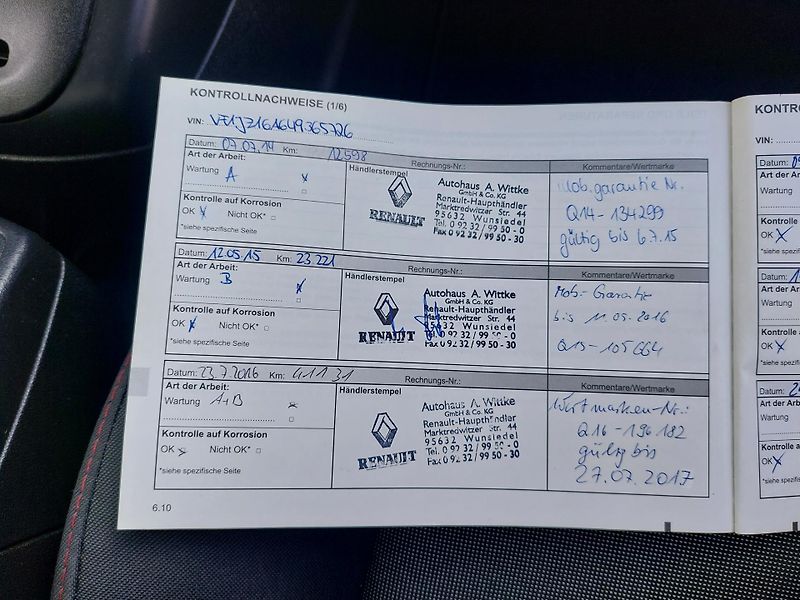 KONTROLLNACHWEISE (1/6)
VIN: VF1JZ161649365726
Datum: 07.07.14 Km: 12598 Rechnungs-Nr.:
Art der Arbeit:
Wartung A x
Kontrolle auf Korrosion
OK x Nicht OK*
*siehe spezifische Seite
Händlerstempel
RENAULT
Autohaus A. Wittke
GmbH & Co. KG
Renault-Haupthändler
Marktredwitzer Str. 44
95632 Wunsiedel
Tel. 0 92 32 / 99 50 - 0
Fax 0 92 32 / 99 50 - 30
Kommentare/Wertmarke
Mob.garantie Nr.
Q14-134299
gültig bis 6.7.15
Datum: 12.05.15 Km: 23 221 Rechnungs-Nr.:
Art der Arbeit:
Wartung B x
Kontrolle auf Korrosion
OK x Nicht OK*
*siehe spezifische Seite
Händlerstempel
RENAULT
Autohaus A. Wittke
GmbH & Co. KG
Renault-Haupthändler
Marktredwitzer Str. 44
95632 Wunsiedel
Tel. 0 92 32 / 99 50 - 0
Fax 0 92 32 / 99 50 - 30
Kommentare/Wertmarke
Mob.-Garantie
bis 11.05.2016
Q15-105664
Datum: 23.7.2016 Km: 41131 Rechnungs-Nr.:
Art der Arbeit:
Wartung A+B x
Kontrolle auf Korrosion
OK x Nicht OK*
*siehe spezifische Seite
Händlerstempel
RENAULT
Autohaus A. Wittke
GmbH & Co. KG
Renault-Haupthändler
Marktredwitzer Str. 44
95632 Wunsiedel
Tel. 0 92 32 / 99 50 - 0
Fax 0 92 32 / 99 50 - 30
Kommentare/Wertmarke
Wertmarken-Nr.:
Q16-196182
gültig bis
27.07.2017
6.10
KONTROL
VIN:
Datum:
Art der Arb
Wartung
Kontrolle
OK x
*siehe spezi
Datum:
Art der Arb
Wartung
Kontrolle
OK x
*siehe spezi
Datum:
Art der Ar
Wartung
Kontrolle
OK x
*siehe spe